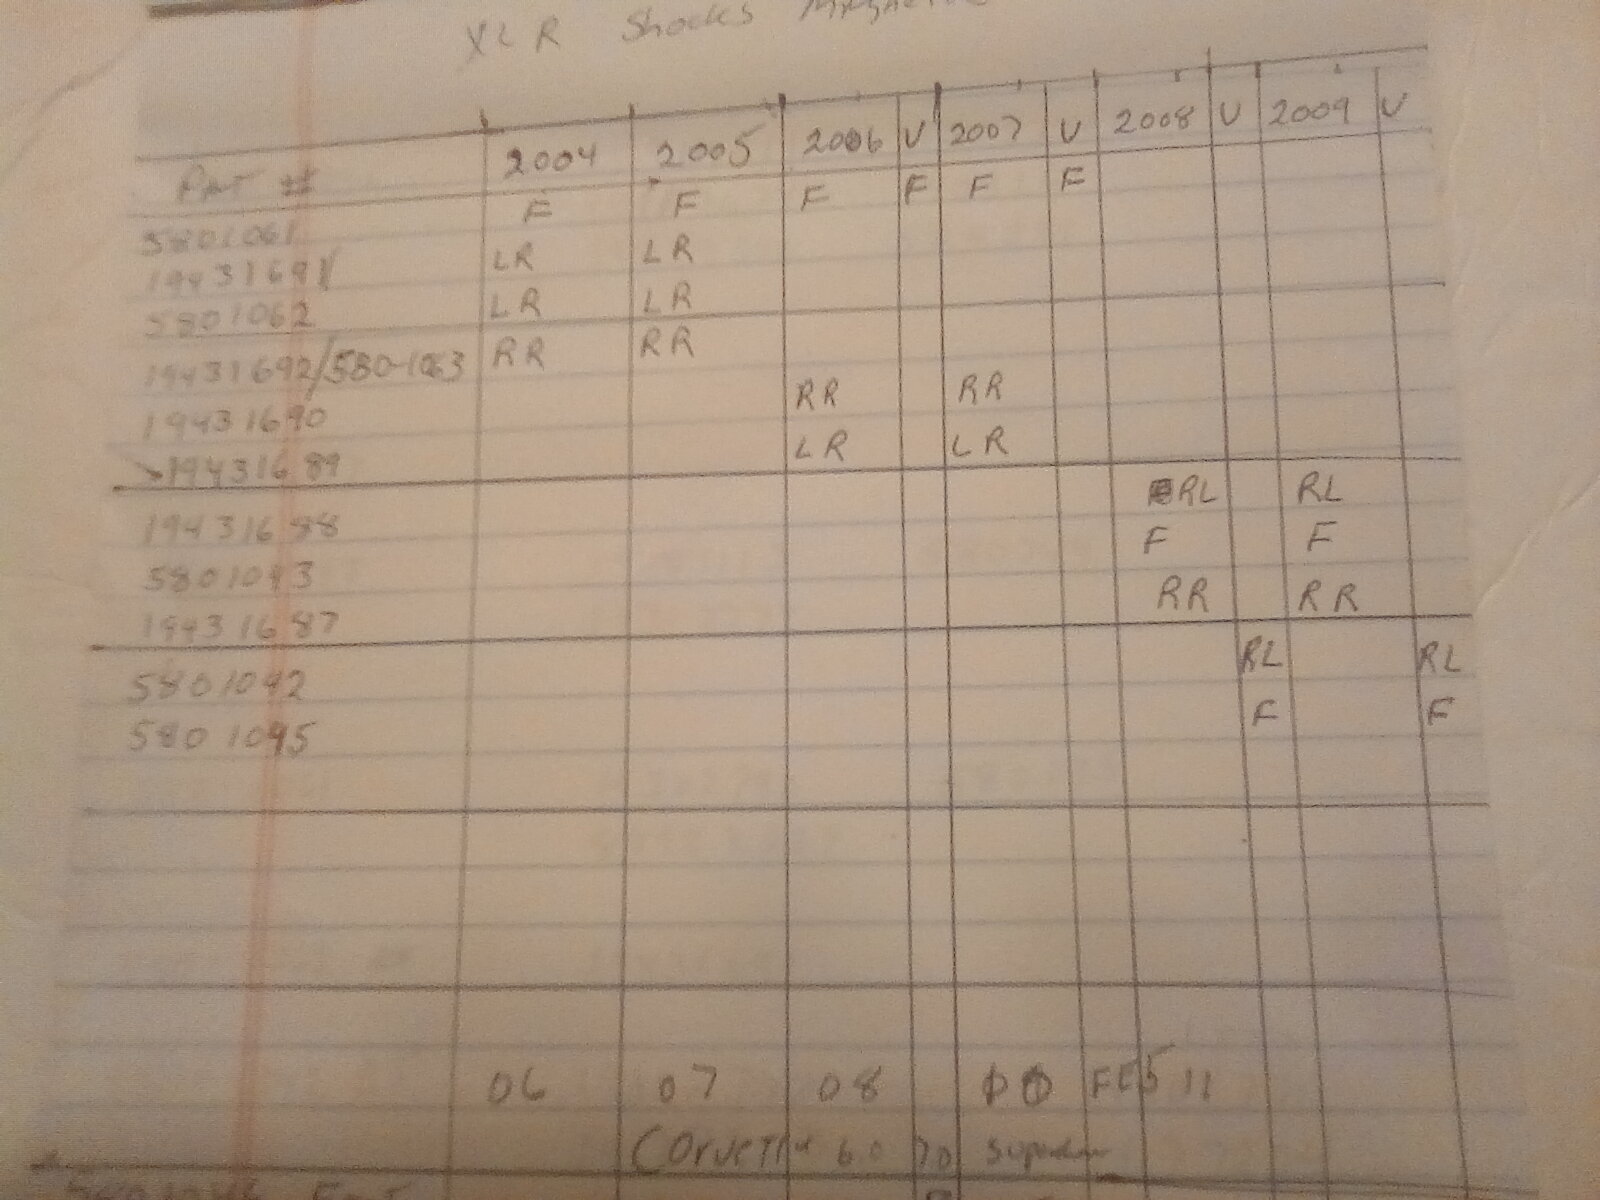 XLR Shocks
Part # 2004 2005 2006 V 2007 V 2008 V 2009 V
5801061 F F F F F F
19431691/ LR LR
5801062 LR LR
19431692/580-1063 RR RR
19431690 RR RR
19431689 LR LR
19431688 RL RL
5801093 F F
19431687 RR RR
5801092 RL RL
5801095 F F
06 07 08 11
Corvette 6.0 7.0